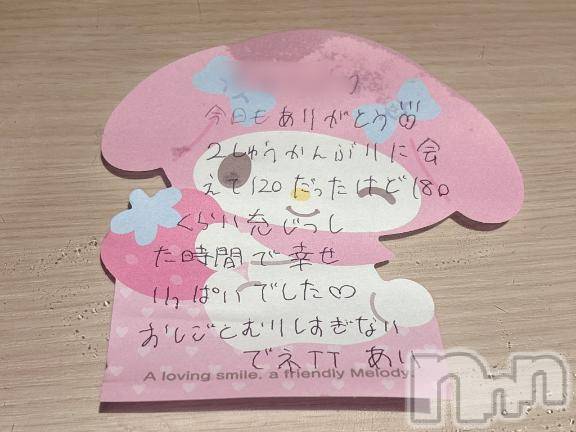 今日もありがとう
2しゅうかんぶりに会
えて120だったけど180
くらい充じっし
た時間で幸せ
いっぱいでした♡
おしごとむりしすぎない
でネTT あい
A loving smile, a friendly Melody.
nnn